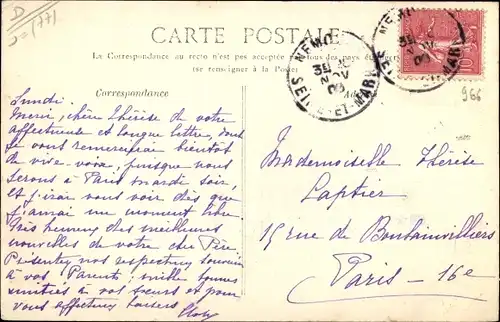 CARTE POSTALE
La Correspondance au recto n'est pas acceptée tous les pays
(se renseigner à la Poste)
NEMOURS
SEINE-ET-MARNE
NEM
SEINE-ET-MARNE
10
966
Correspondance
Lundi.
Merci, chère Thérèse de votre
affectueuse et longue lettre, dont
je vous remercierai bientôt
de vive-voix, puisque nous
serons à Paris mardi soir,
et j'irai vous voir dès que
j'aurai un moment libre
Très heureux des meilleures
nouvelles de votre cher Père
Présentez nos respectueux souvenirs
à vos Parents; mille bonnes
amitiés à vos sœurs et pour
vous affectueux baisers
Mademoiselle Thérèse
Laptier
15 rue de Boulainvilliers
Paris - 16e